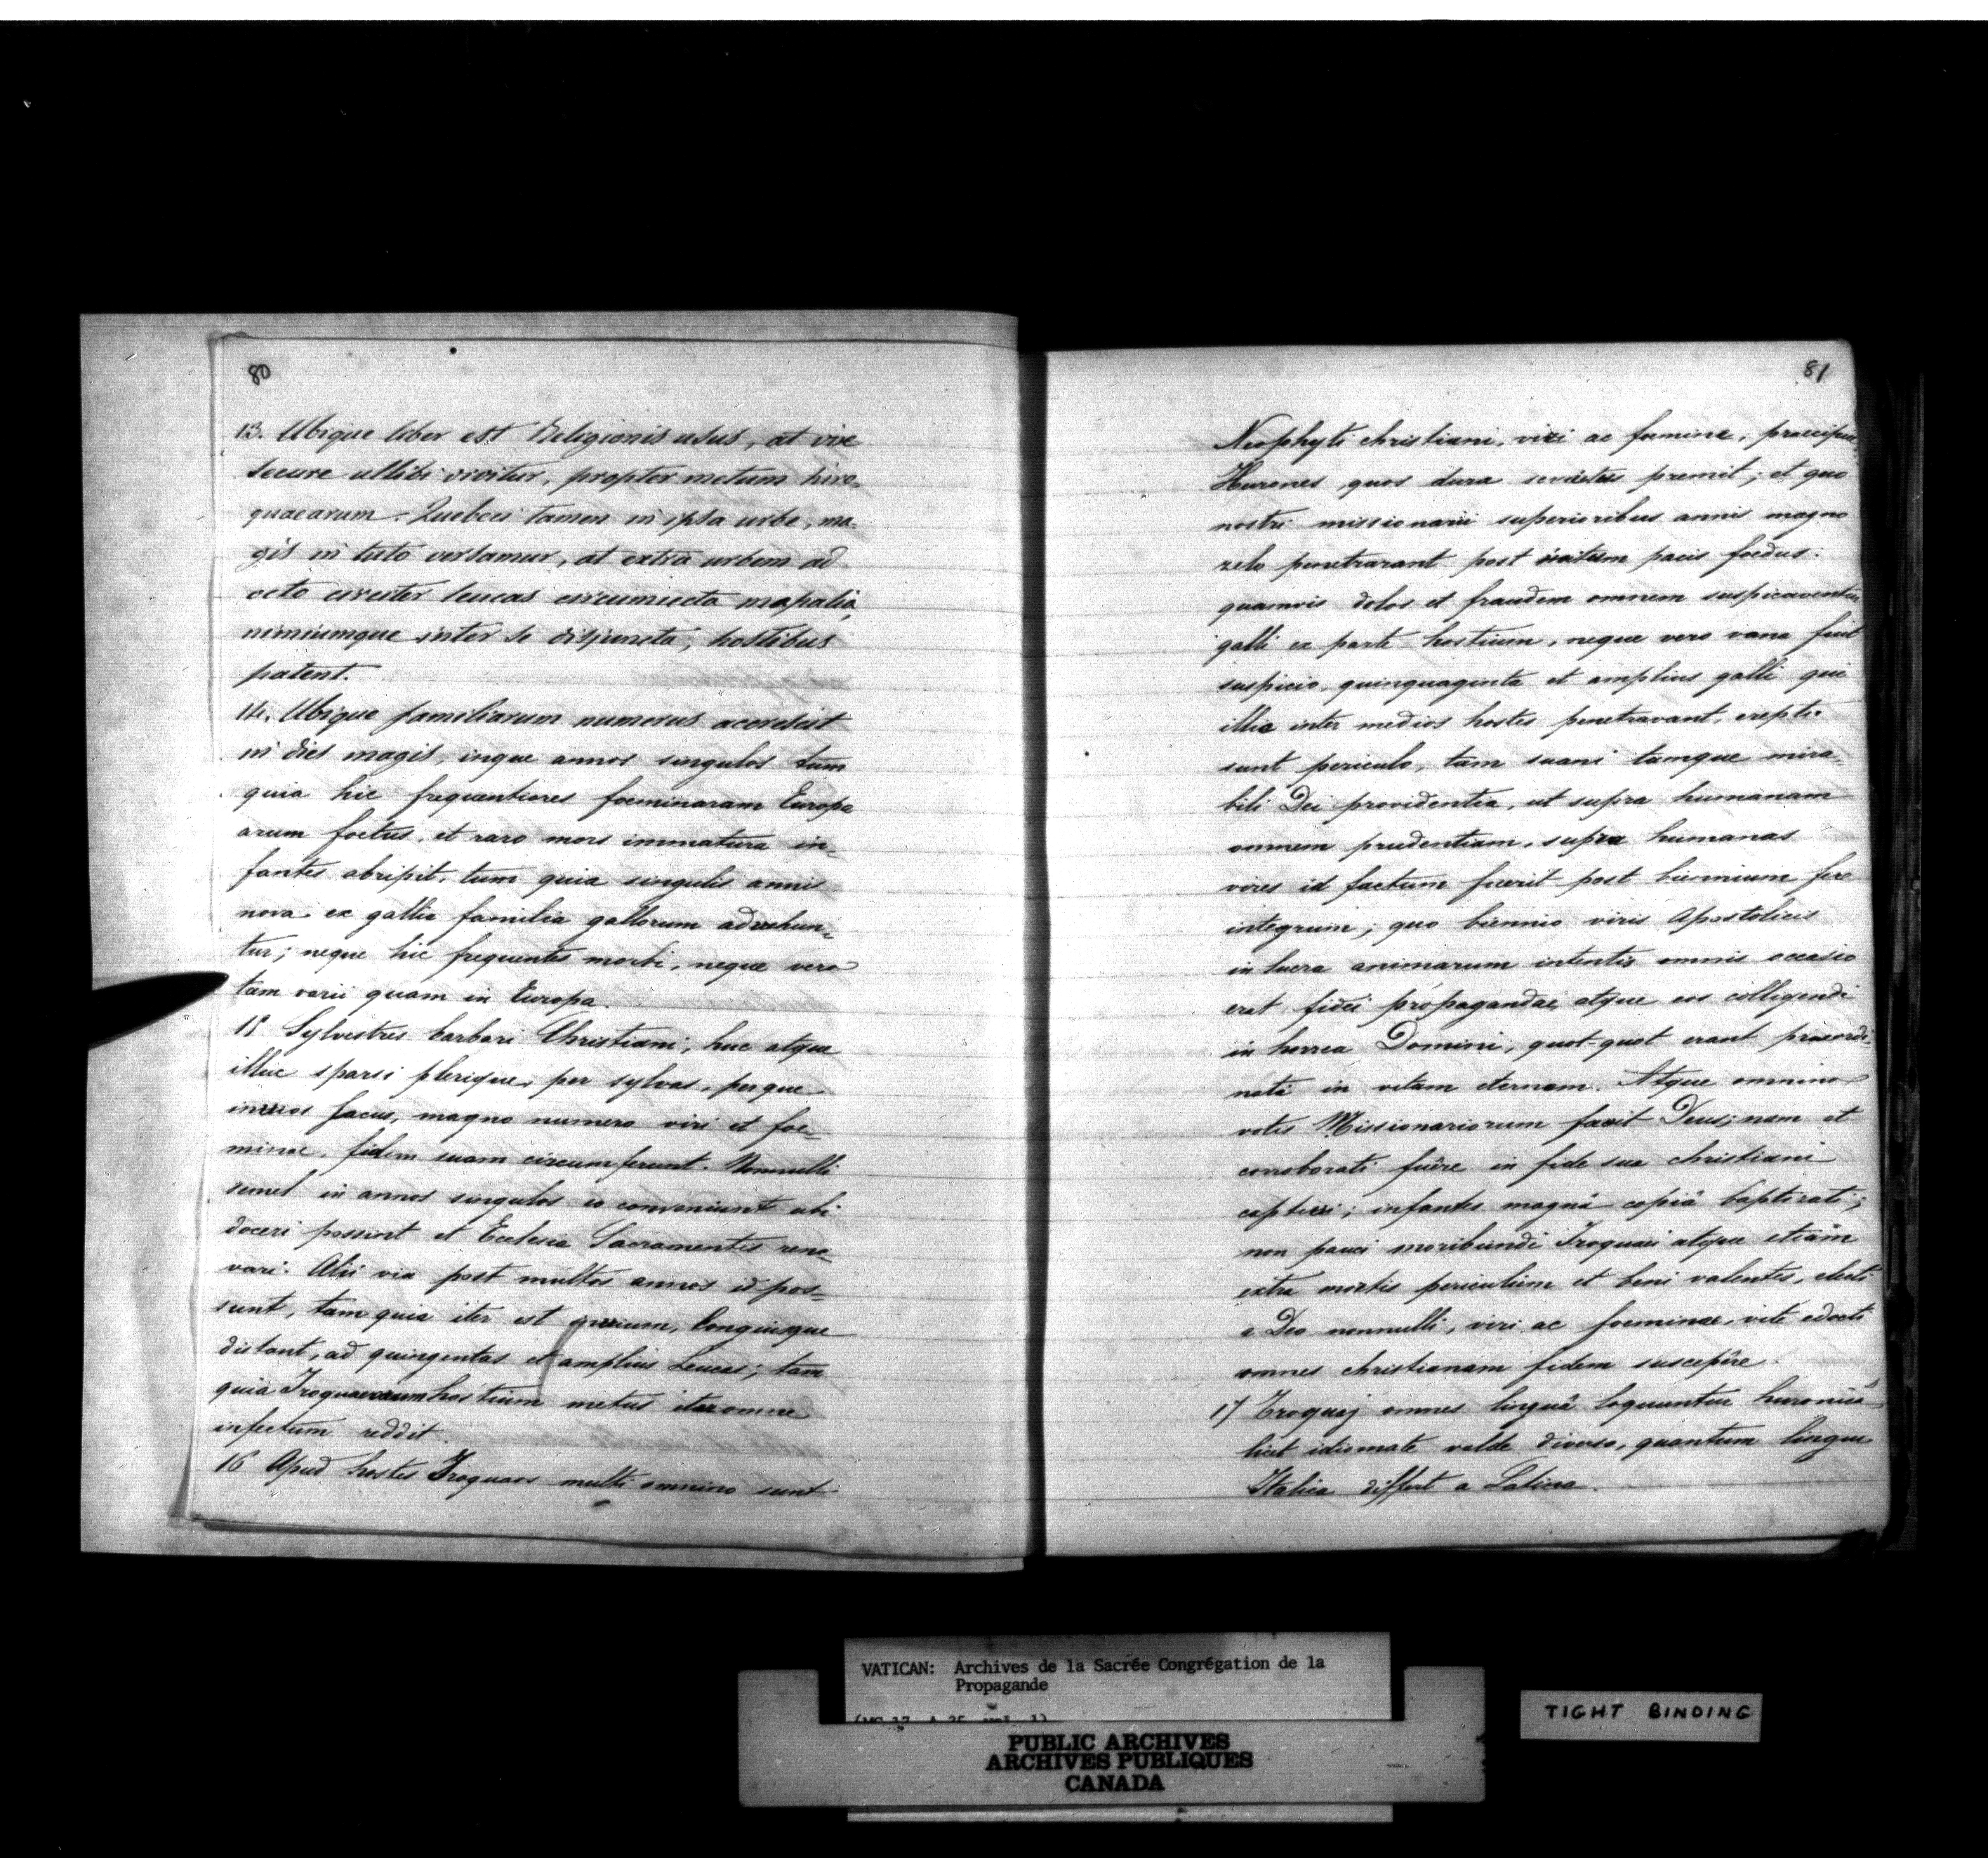 80
13. Ubique liber est Religionis usus, at vix
secure ullibi vivitur, propter metum hiro-
quaearum. Quebeci tamen in ipsa urbe, ma-
gis in tuto versamur, at extra urbem ad
octo circiter leucas circumiecta mapalia,
nimiumque inter se disjuncta, hostibus
patent.
14. Ubique familiarum numerus accrescit
in dies magis, inque annos singulos tum
quia hic frequentiores foeminaram Europa
arum foetus, et raro mors immatura in-
fantes abripit, tum quia singulis annis
nova ex gallia familia gallorum advehun-
tur; neque hic frequentes morbi, neque vero
tam varii quam in Europa.
15 Sylvestres barbari Christiani, huc atque
illuc sparsi plerique, per sylvas, perque
lacus, magno numero viri et foe-
minae, fidem suam circumferunt. Nonnulli
semel in annos singulos eo conveniunt ubi
doceri possint et Ecclesia Sacramentis reno-
vari. Alii vix post multos annos id pos-
sunt, tam quia iter est longinque
distant, ad quingentas et amplius Leucas; tam
quia Iroquaeorum hostium metus iter omne
infectum reddit.
16 Apud hostes Iroquaos multi omnino sunt
81
Neophyti christiani, viri ac foemine, praecipue
Hurones, quos dura servitus premit; et quo
nostri missionarii superioribus annis magno
zelo penetrarant post initum pacis foedus:
quamvis dolos et fraudem omnem suspicaventur
galli ex parte hostium, neque vero vana fuit
suspicio, quinquaginta et amplius galli qui
illic inter medios hostes penetravant, erepti
sunt periculo, tam suavi tamque mira-
bili Dei providentia, ut supra humanam
omnem prudentiam, supra humanas
vires id factum fuerit post biennium fere
integrum; quo biennio viris Apostolicis
in lucra animarum intentis omnis occasio
erat fidei propagandae, atque eos colligendi
in horrea Domini, quot-quot erant praeordi-
nati in vitam eternam. Atque omnino
votis Missionariorum favit Deus; nam et
corroborati fuêre in fide sua christiani
captivi; infantes magnâ copiâ baptizati;
non pauci moribundi Iroquaei atque etiam
extra mortis periculum et beni valentes, electi
a Deo nonnulli, viri ac foeminae, vitè edocti
omnes christianam fidem suscepêre.
17 Eroquaj omnes linguâ loquuntur huronicâ
licet idiomate valde diverso, quantum lingua
Italica differt a Latina.
VATICAN: Archives de la Sacrée Congrégation de la
Propagande
(MG 17, A 25, vol. 1)
PUBLIC ARCHIVES
ARCHIVES PUBLIQUES
CANADA
TIGHT BINDING